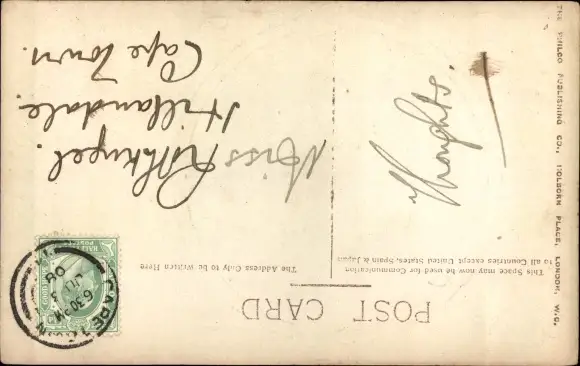 POST CARD
This Space may now be used for Communication
to all Countries except United States, Spain & Japan
The Address Only to be written Here
Thoughts.
Miss
Hillandale.
Cape Town.
HALFPENNY
POSTAGE
CAPE TOWN
6.30 PM
08
THE PHILCO PUBLISHING CO., HOLBORN PLACE, LONDON, W.C.